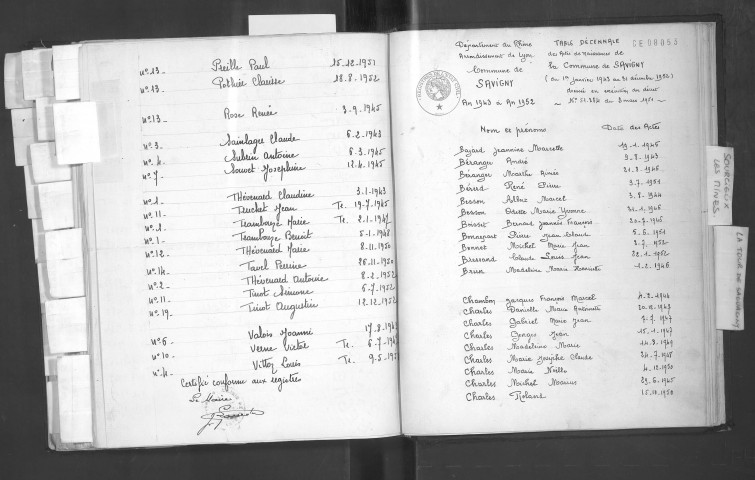 n° 13 Preille Paul 15.12.1951
n° 13 Pothier Clarisse 18.8.1952
n° 13 Rose Renée 3.9.1945
n° 3 Sainlager Claude 6.2.1943
n° 4 Subrin Antoine 6.3.1945
n° 7 Souvet Josephine 12.4.1945
n° 1 Thévenard Claudine 3.1.1943
n° 11 Truchet Jean Tr. 19.7.1945
n° 1 Trambouze Marie Tr. 2.1.1947
n° 1 Trambouze Benoit 5.1.1948
n° 12 Thévenard Marie 8.11.1950
n° 14 Tavel Perrine 26.11.1950
n° 2 Thévenard Antoine 8.2.1952
n° 11 Tinot Simone 6.7.1952
n° 19 Tinot Augustin 12.12.1952
n° 6 Valois Joanni 17.8.1943
n° 10 Verne Victor Tr. 6.7.194
n° 4 Vittoz Louis Tr. 9.5.1951
Certifié conforme aux registres
Le Maire
Département du Rhône
Arrondissement de Lyon
Commune de
SAVIGNY
An 1943 à An 1952
TABLE DÉCENNALE
des Actes de Naissances de
la Commune de SAVIGNY
(du 1er janvier 1943 au 31 décembre 1952)
dressée en exécution du décret
N° 51.284 du 3 mars 1951
Nom et prénoms Date des Actes
Bajard Jeannine Marcelle 19.1.1946
Béranger André 9.8.1943
Béranger Marthe Aimée 21.8.1946
Bérerd René Pierre 3.7.1951
Besson Albert Marcel 3.8.1944
Besson Odette Marie Yvonne 21.1.1946
Boisset Bernard Jeannès François 20.7.1945
Bonnepart Pierre Jean Claude 5.6.1951
Bonnet Michel Marie Jean 2.7.1952
Bressand Claude Louis Jean 22.1.1952
Brun Madeleine Marie Henriette 1.2.1946
Chambon Jacques François Marcel 4.2.1946
Charles Danielle Marie Antoinette 20.11.1943
Charles Gabriel Marie Jean 7.7.1947
Charles Georges Jean 15.1.1947
Charles Madeleine Marie 14.8.1949
Charles Marie Josèphe Claude 24.7.1948
Charles Marie Noëlle 4.12.1950
Charles Michel Marius 29.6.1945
Charles Roland 15.10.1950
SOURCIEUX
LES MINES
LA TOUR DE SALVAGNY